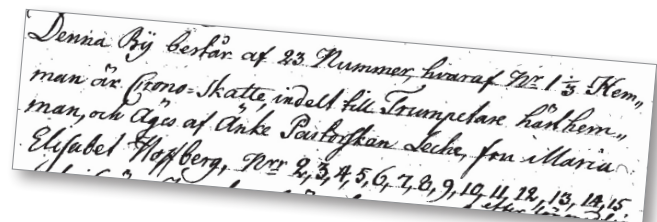 Denna Bÿ består af 23 Nummer, hvaraf Nr 1 1/3 Hem„
man är Crono-Skatte, indelt till Trumpetare häst hem„
man, och äges af Änke Pastorskan Leche, fru Maria
Elisabet Hoffberg, Nrr 2, 3, 4, 5, 6, 7, 8, 9, 10, 11, 12, 13, 14, 15